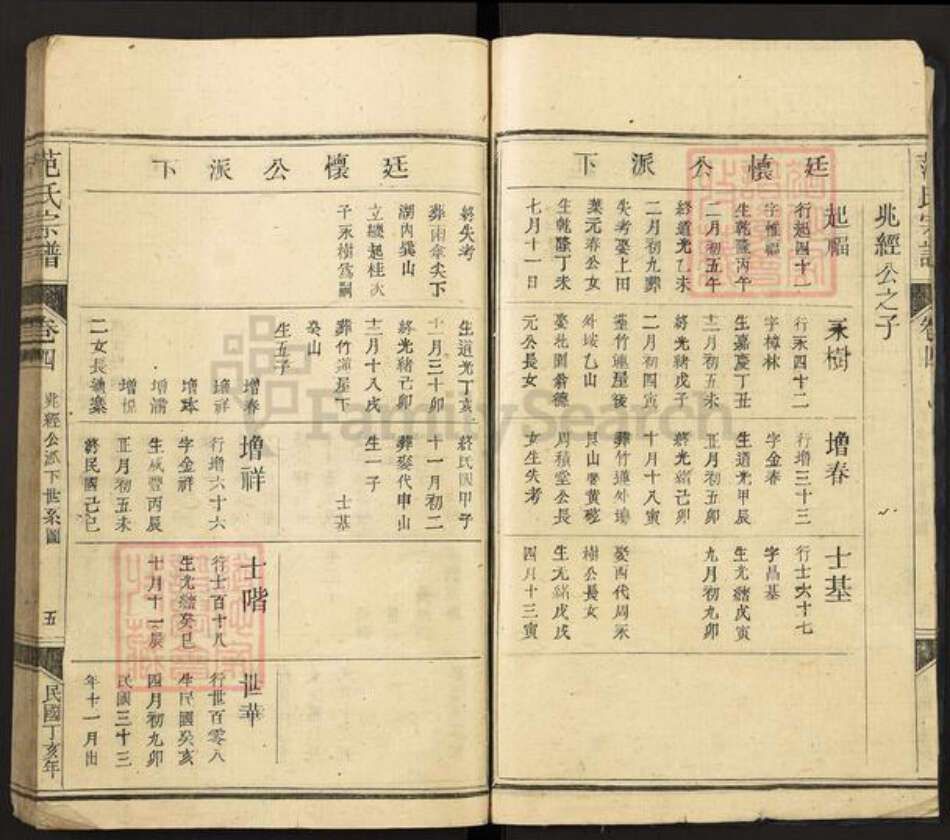 兆經公之子
廷懷公派下
起福
行起四十一
字惟福
生乾隆丙午
二月初五午
終道光乙未
二月初九葬
失考娶上田
葉元春公女
生乾隆丁未
七月十一日
永樹
行永四十二
字樟林
生嘉慶丁丑
十二月初五未
終光緒戊子
二月初四寅
葬竹蓮屋後
外垓乙山
元公長女
增春
行增三十三
字金春
生道光甲辰
正月初五卯
終光緒己卯
十月十八寅
葬竹蓮外塆
周積堂公長
女生失考
士基
行士六十七
字昌基
生光緒戊寅
九月初九卯
娶西代周永
樹公長女
生光緒戊戌
四月十三寅
范氏宗譜
卷四
兆經公派下世系圖
五
民國丁亥年
廷懷公派下
終失考
葬雨傘尖下
湖內巽山
立緩起桂次
子永樹為嗣
生道光丁亥
十一月三十卯
終光緒己卯
十二月十八戌
葬竹蓮屋下
癸山
生五子
增春
增祥
增球
增滿
增悅
終民國甲子
十一月初二
葬娶代申山
生一子
士基
增祥
行增六十六
字金祥
生咸豐丙辰
正月初五未
終民國己巳
士階
行士百十八
生光緒癸巳
十月十一辰
世華
行世百零八
生民國癸亥
四月初九卯
民國三十三
年十一月出
FamilySearch